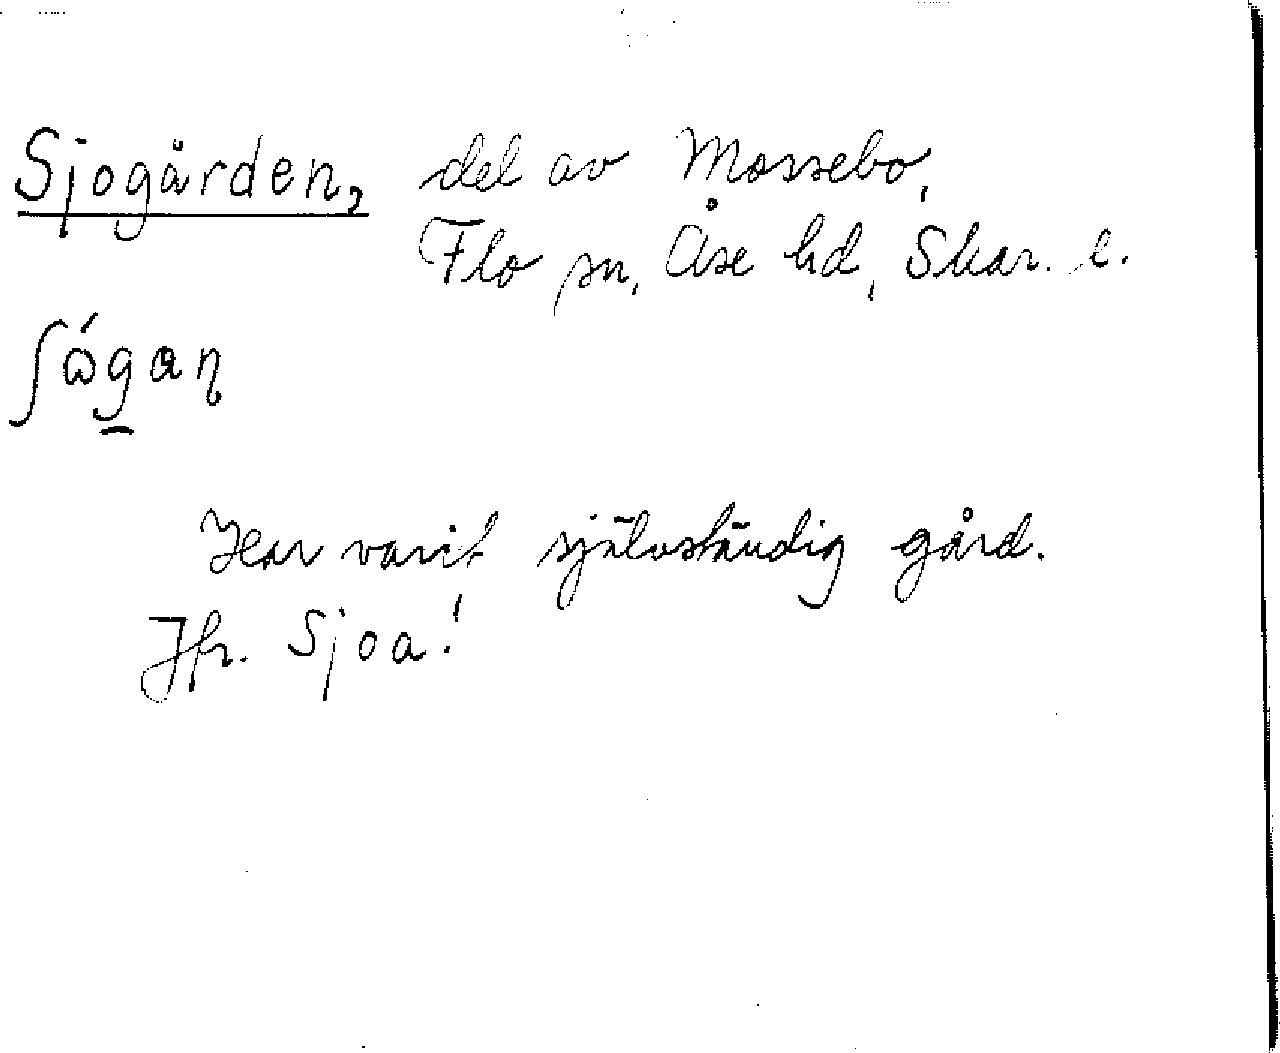 Sjogården, del av Mossebo,
Flo sn, Åse hd, Skar. l.
Har varit självständig gård.
Jfr. Sjoa!